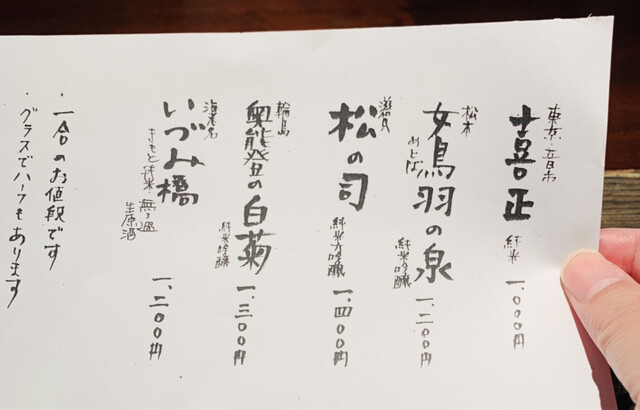 東京・昔み
喜正 純米 一、〇〇〇円
松本
女鳥羽の泉 めとば 純米吟醸 一、二〇〇円
滋賀
松の司 純米大吟醸 一、四〇〇円
輪島
奥能登の白菊 純米吟醸 一、三〇〇円
海老名
いづみ橋 きもと純米・無ろ過生原酒 一、二〇〇円
・一合のお値段です
・グラスでハーフもあります